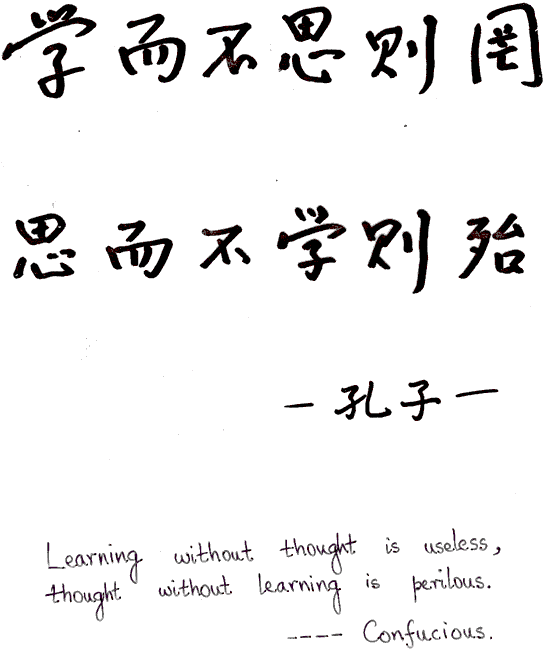 学而不思则罔
思而不学则殆
— 孔子 —
Learning without thought is useless,
thought without learning is perilous.
---- Confucious.